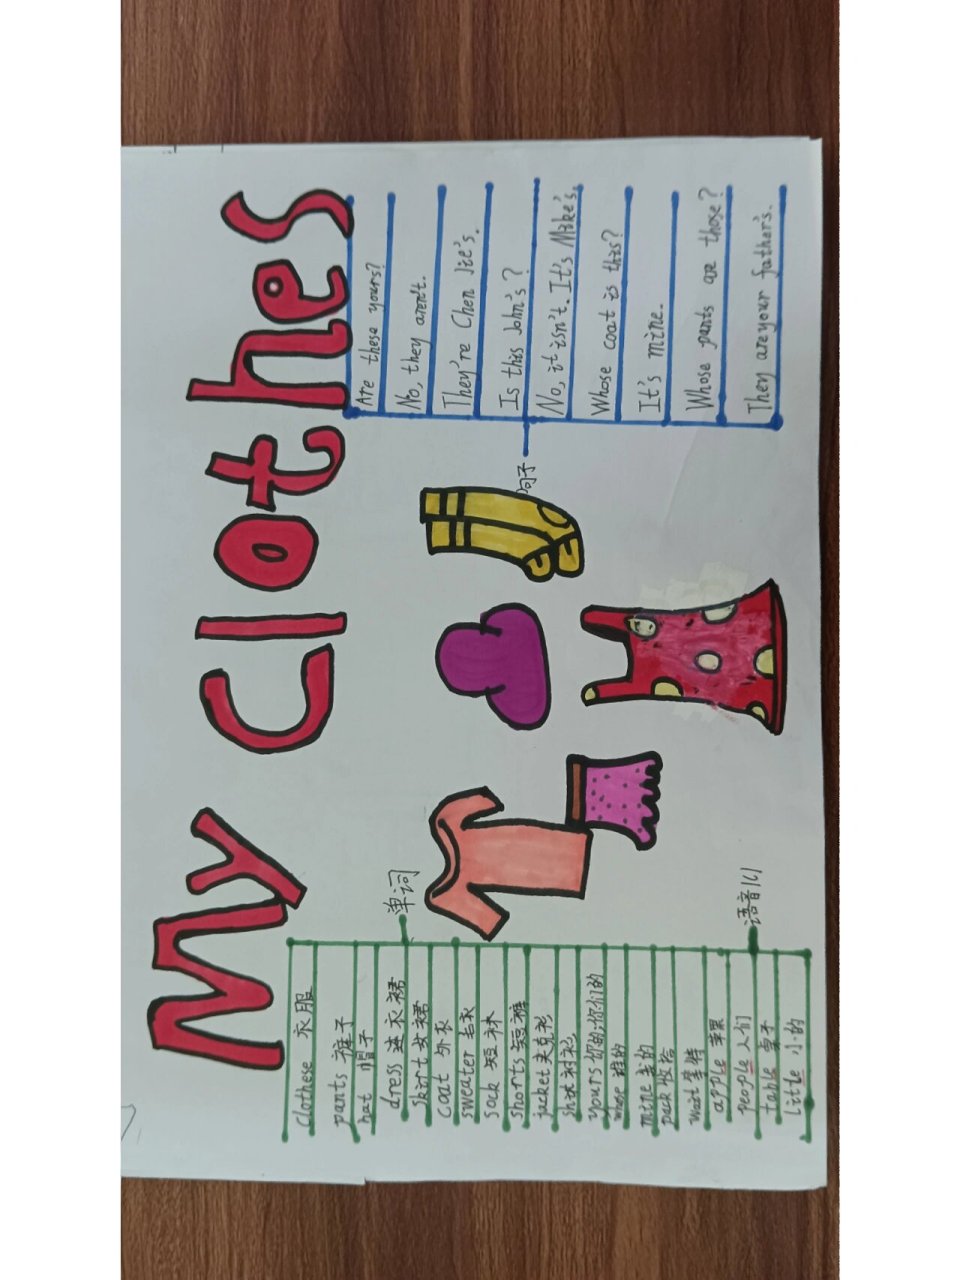 My clothes
单词
clothese 衣服
pants 裤子
hat 帽子
dress 连衣裙
skirt 女裙
coat 外衣
sweater 毛衣
sock 短袜
shorts 短裤
jacket 夹克衫
shirt 衬衫
yours 你的,你们的
whose 谁的
mine 我的
pack 收拾
wait 等待
语音/l/
apple 苹果
people 人们
table 桌子
little 小的
句子
Are these yours?
No, they aren't.
They're Chen Jie's.
Is this John's?
No, it isn't. It's Mike's.
Whose coat is this?
It's mine.
Whose pants are those?
They are your father's.